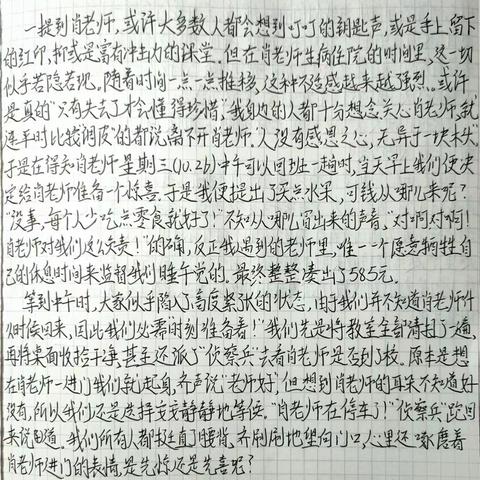 一提到肖老师，或许大多数人都会想到叮叮的钥匙声，或是手上留下
的红印，抑或是富有冲击力的课堂。但在肖老师生病住院的时间里，这一切
似乎若隐若现。随着时间一点一点推移，这种不适感越来越强烈。或许
是真的"只有失去了才会懂得珍惜"我身边的人都十分想念关心肖老师，就
连平时比较调皮的都说离不开肖老师。"人没有感恩之心，无异于一块木头"
于是在得知肖老师星期三(10.26)中午可以回班一趟时，当天早上我们便决
定给肖老师准备一个惊喜。于是我便提出了买点水果，可钱从哪儿来呢？
"没事，每个人少吃点零食就好了！"不知从哪儿冒出来的声音，"对啊对啊！
肖老师对我们这么负责！"的确，反正我遇到的老师里，唯一一个愿意牺牲自
己的休息时间来监督我们睡午觉的。最终整整凑出了585元。
等到中午时，大家似乎陷入了高度紧张的状态，由于我们并不知道肖老师什
么时候回来，因此我们必需"时刻准备着！"我们先是将教室全部清扫了一遍，
再将桌面收拾干净，甚至还派了"侦察兵"去看肖老师是否到校。原本是想
在肖老师一进门我们就起身，齐声说"老师好"但想到肖老师的耳朵不知道好
没有，所以我们还是选择安安静静地等候。"肖老师在停车了！""侦察兵"跑回
来说道。我们所有人都挺直了腰背，齐刷刷地望向门口，心里还琢磨着
肖老师进门的表情是先惊还是先喜呢？